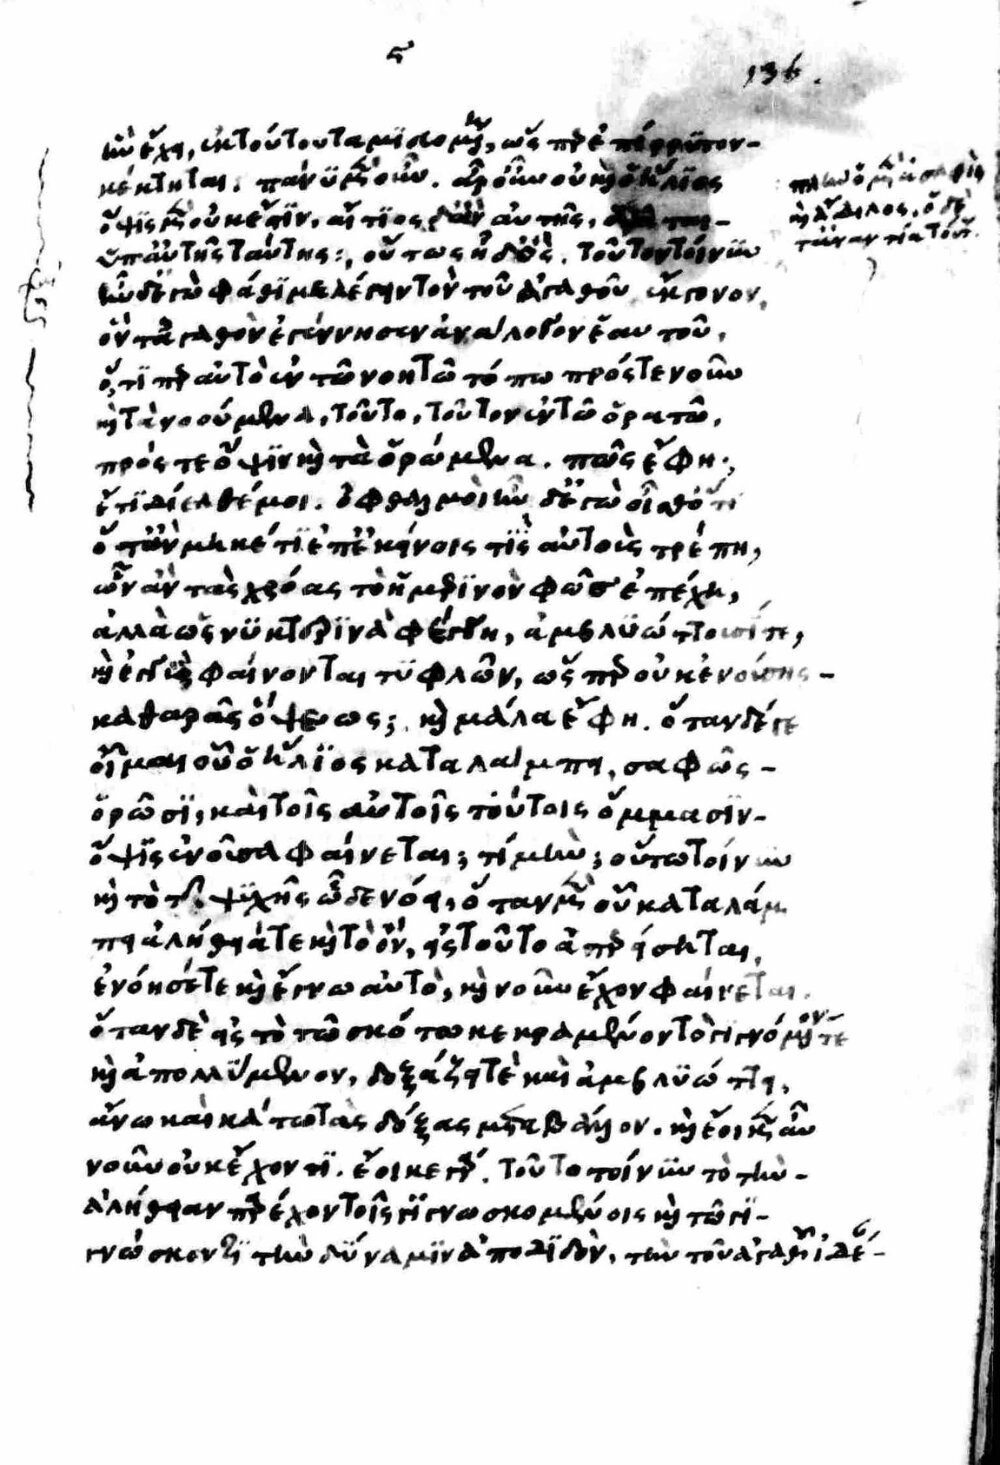 ϛ
136.
ἣν ἔχει, ἐκ τούτου ταμιευομένην, ὥσπερ ἐπίρρυτον
κέκτηται; πάνυ μὲν οὖν. ἆρ' οὖν οὐ καὶ ὁ ἥλιος
ὄψις μὲν οὐκ ἔστιν, αἴτιος δ' ὢν αὐτῆς,
ὑπ' αὐτῆς ταύτης; οὕτως ἦ δ' ὅς. τοῦτον τοίνυν
ἦν δ' ἐγὼ φάθι με λέγειν τὸν τοῦ ἀγαθοῦ ἔκγονον,
ὃν τἀγαθὸν ἐγέννησεν ἀνάλογον ἑαυτοῦ,
ὅ,τι περ αὐτὸ ἐν τῶ νοητῶ τόπω πρός τε νοῦν
καὶ τὰ νοούμενα, τοῦτο, τοῦτον ἐν τῶ ὁρατῶ,
πρός τε ὄψιν καὶ τὰ ὁρώμενα. πῶς ἔφη;
ἔτι δίελθέ μοι. ὀφθαλμοὶ ἦν δ' ἐγὼ οἶσθ' ὅτι
ὅταν μηκέτι ἐπ' ἐκείνοις τὶς αὐτοὺς τρέπη,
ὧν ἂν τὰς χρόας τὸ ἡμερινὸν φῶς ἐπέχη,
ἀλλὰ ὡς νυκτερινὰ φέγγη, ἀμβλυώττουσί τε,
καὶ ἐγγὺς φαίνονται τυφλῶν, ὥσπερ οὐκ ἐνούσης
καθαρᾶς ὄψεως; καὶ μάλα ἔφη. ὅταν δέ γε
οἶμαι οὗ ὁ ἥλιος καταλάμπη, σαφῶς
ὁρῶσι, καὶ τοῖς αὐτοῖς τούτοις ὄμμασιν
ὄψις ἐνοῦσα φαίνεται; τί μήν; οὕτω τοίνυν
καὶ τὸ τῆς ψυχῆς ὧδε νόει, ὅταν μὲν οὗ καταλάμ
πη ἀλήθειά τε καὶ τὸ ὄν, εἰς τοῦτο ἀπερείσηται,
ἐνόησέ τε καὶ ἔγνω αὐτὸ, καὶ νοῦν ἔχον φαίνεται.
ὅταν δὲ εἰς τὸ τῶ σκότω κεκραμένον τὸ γιγνόμενόν τε
καὶ ἀπολλύμενον, δοξάζει τὲ καὶ ἀμβλυώττει,
ἄνω καὶ κάτω τὰς δόξας μεταβάλλον. καὶ ἔοικεν αὖ
νοῦν οὐκ ἔχοντι. ἔοικε γάρ. τοῦτο τοίνυν τὸ τὴν
ἀλήθειαν παρέχον τοῖς γιγνωσκομένοις καὶ τῶ γι
γνώσκοντι τὴν δύναμιν ἀποδιδὸν, τὴν τοῦ ἀγαθοῦ ἰδέ